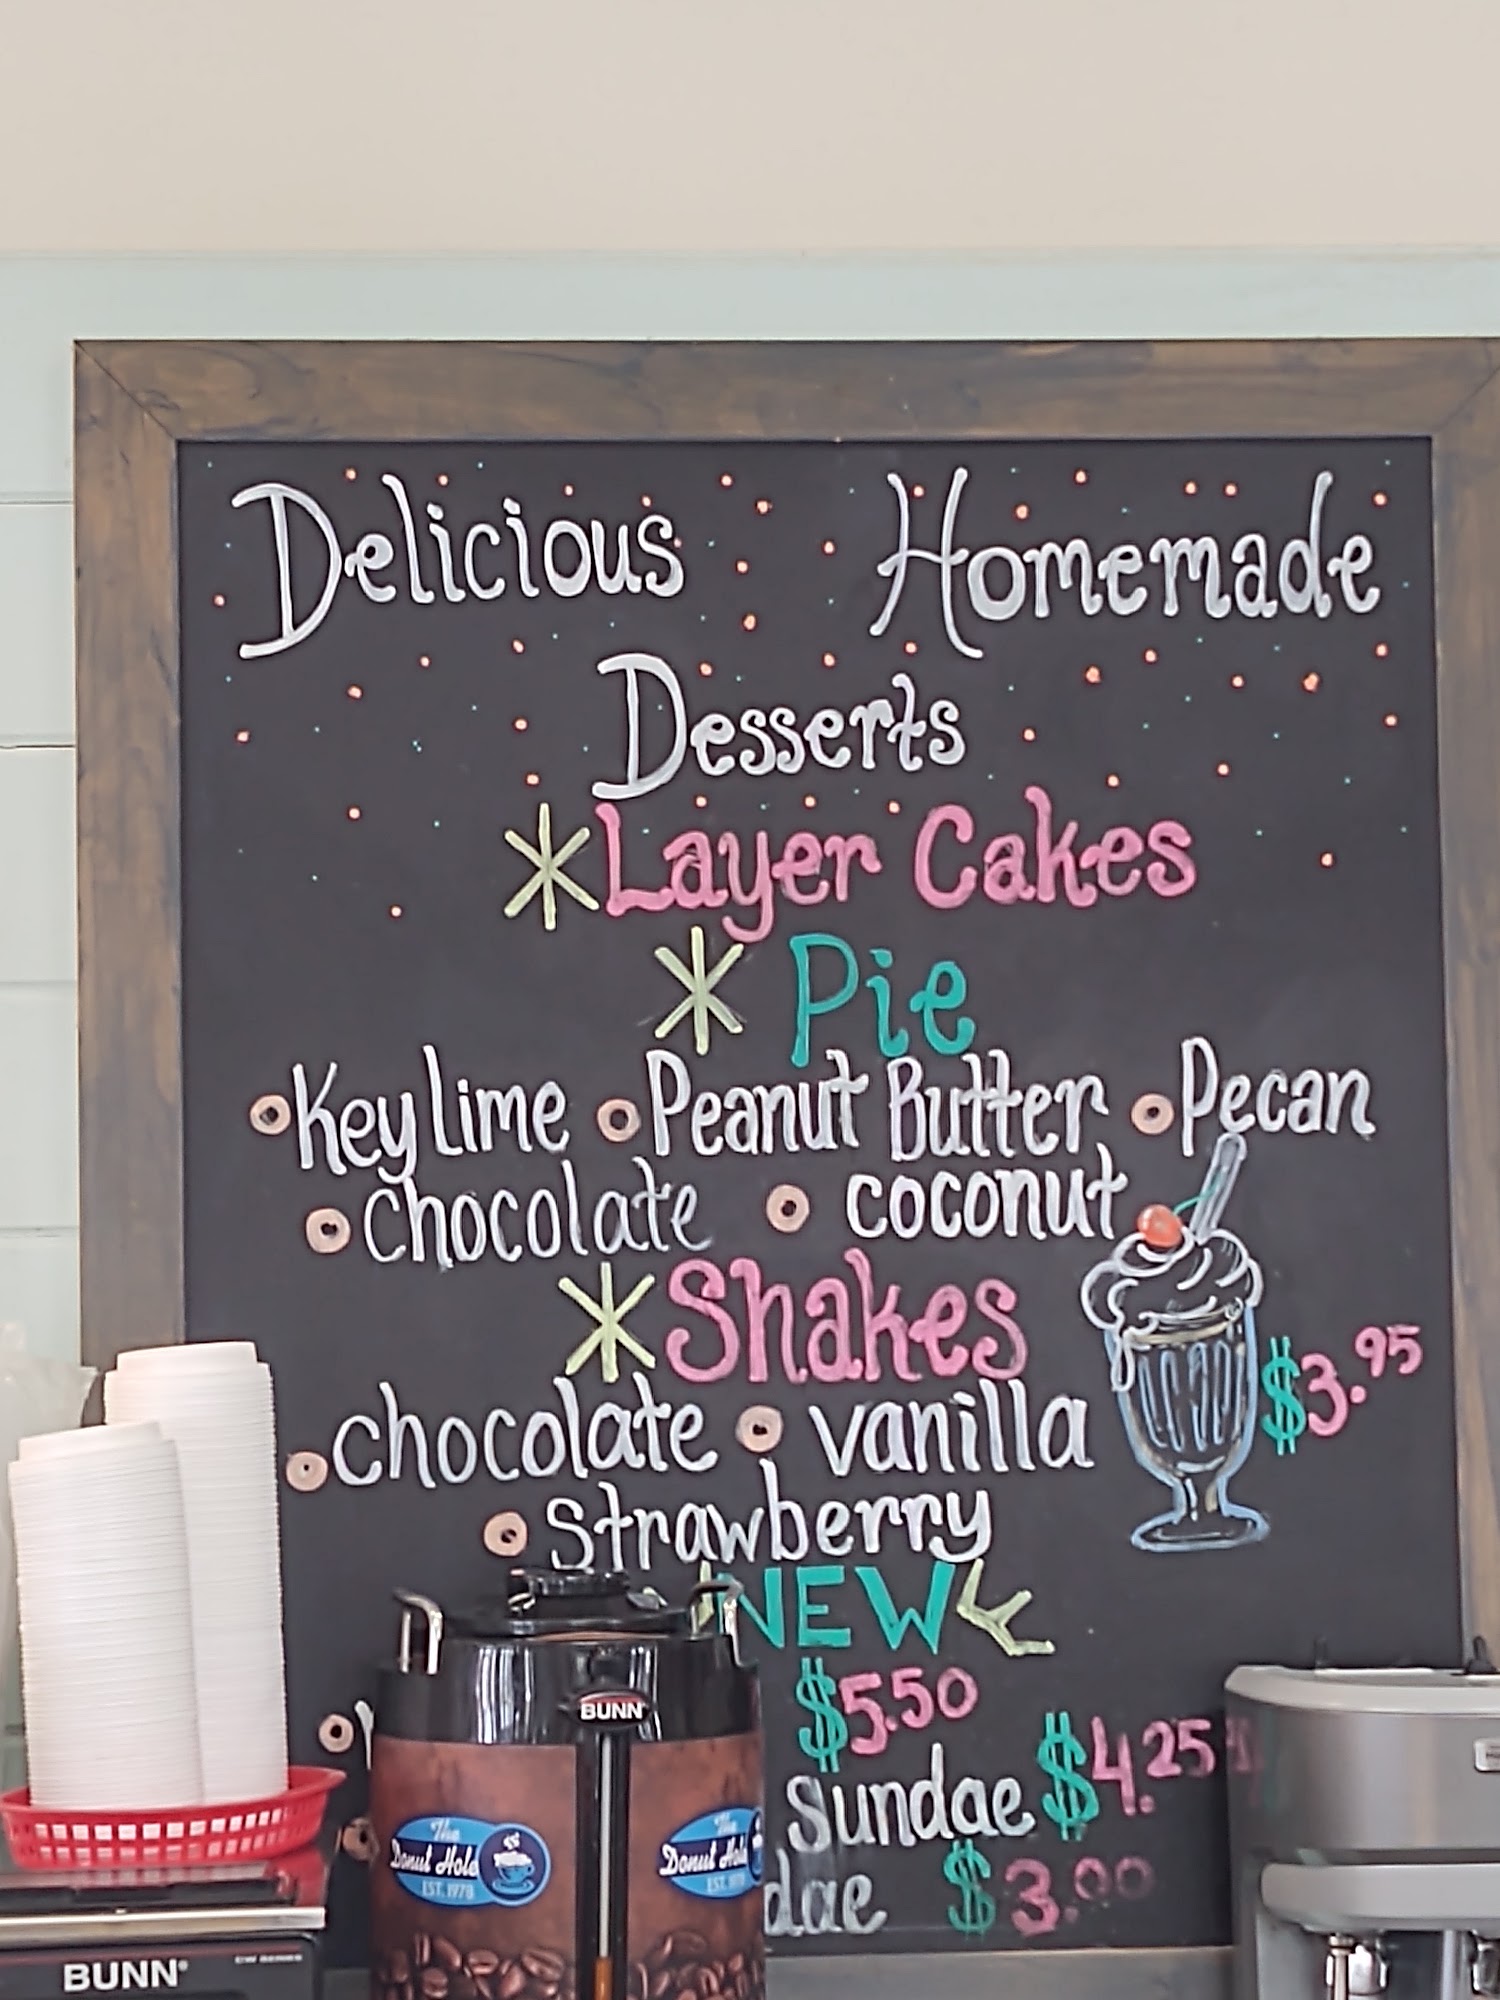 Delicious Homemade
Desserts
Layer Cakes
Pie
Key lime Peanut Butter Pecan
Chocolate coconut
Shakes
$3.95
chocolate vanilla
strawberry
NEW
$5.50
sundae $4.25
$3.00
BUNN
The
Donut Hole
EST. 1978
The
Donut
EST. 1978
BUNN